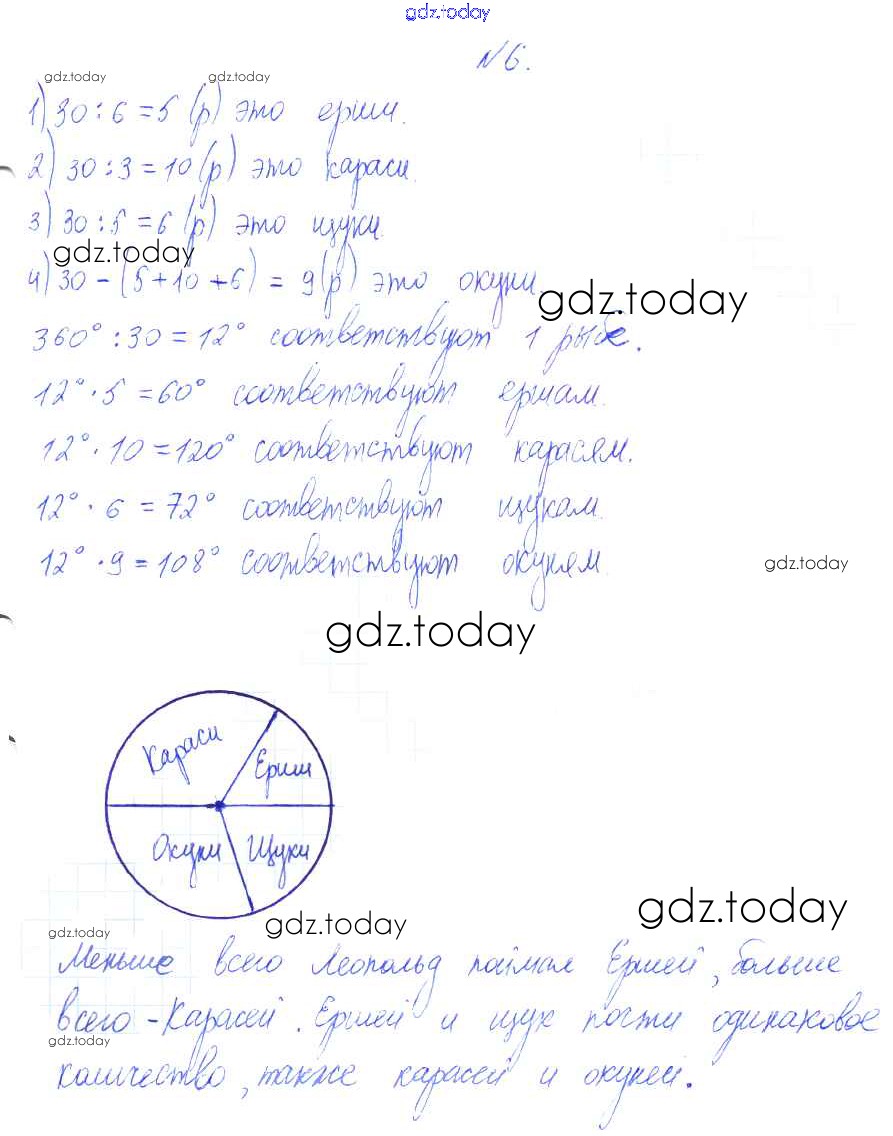 gdz.today
№6.
gdz.today gdz.today
1) 30 : 6 = 5 (р) это ерши.
2) 30 : 3 = 10 (р) это караси.
3) 30 : 5 = 6 (р) это щуки.
gdz.today
4) 30 - (5 + 10 + 6) = 9 (р) это окуни.
gdz.today
360° : 30 = 12° соответствуют 1 рыбе.
12° · 5 = 60° соответствуют ершам.
12° · 10 = 120° соответствуют карасям.
12° · 6 = 72° соответствуют щукам.
12° · 9 = 108° соответствуют окуням.
gdz.today
gdz.today
Караси
Ерши
Окуни Щуки
gdz.today
gdz.today
gdz.today
Меньше всего Леопольд поймал Ершей, больше
всего - Карасей. Ершей и щук почти одинаковое
gdz.today
количество, также карасей и окуней.